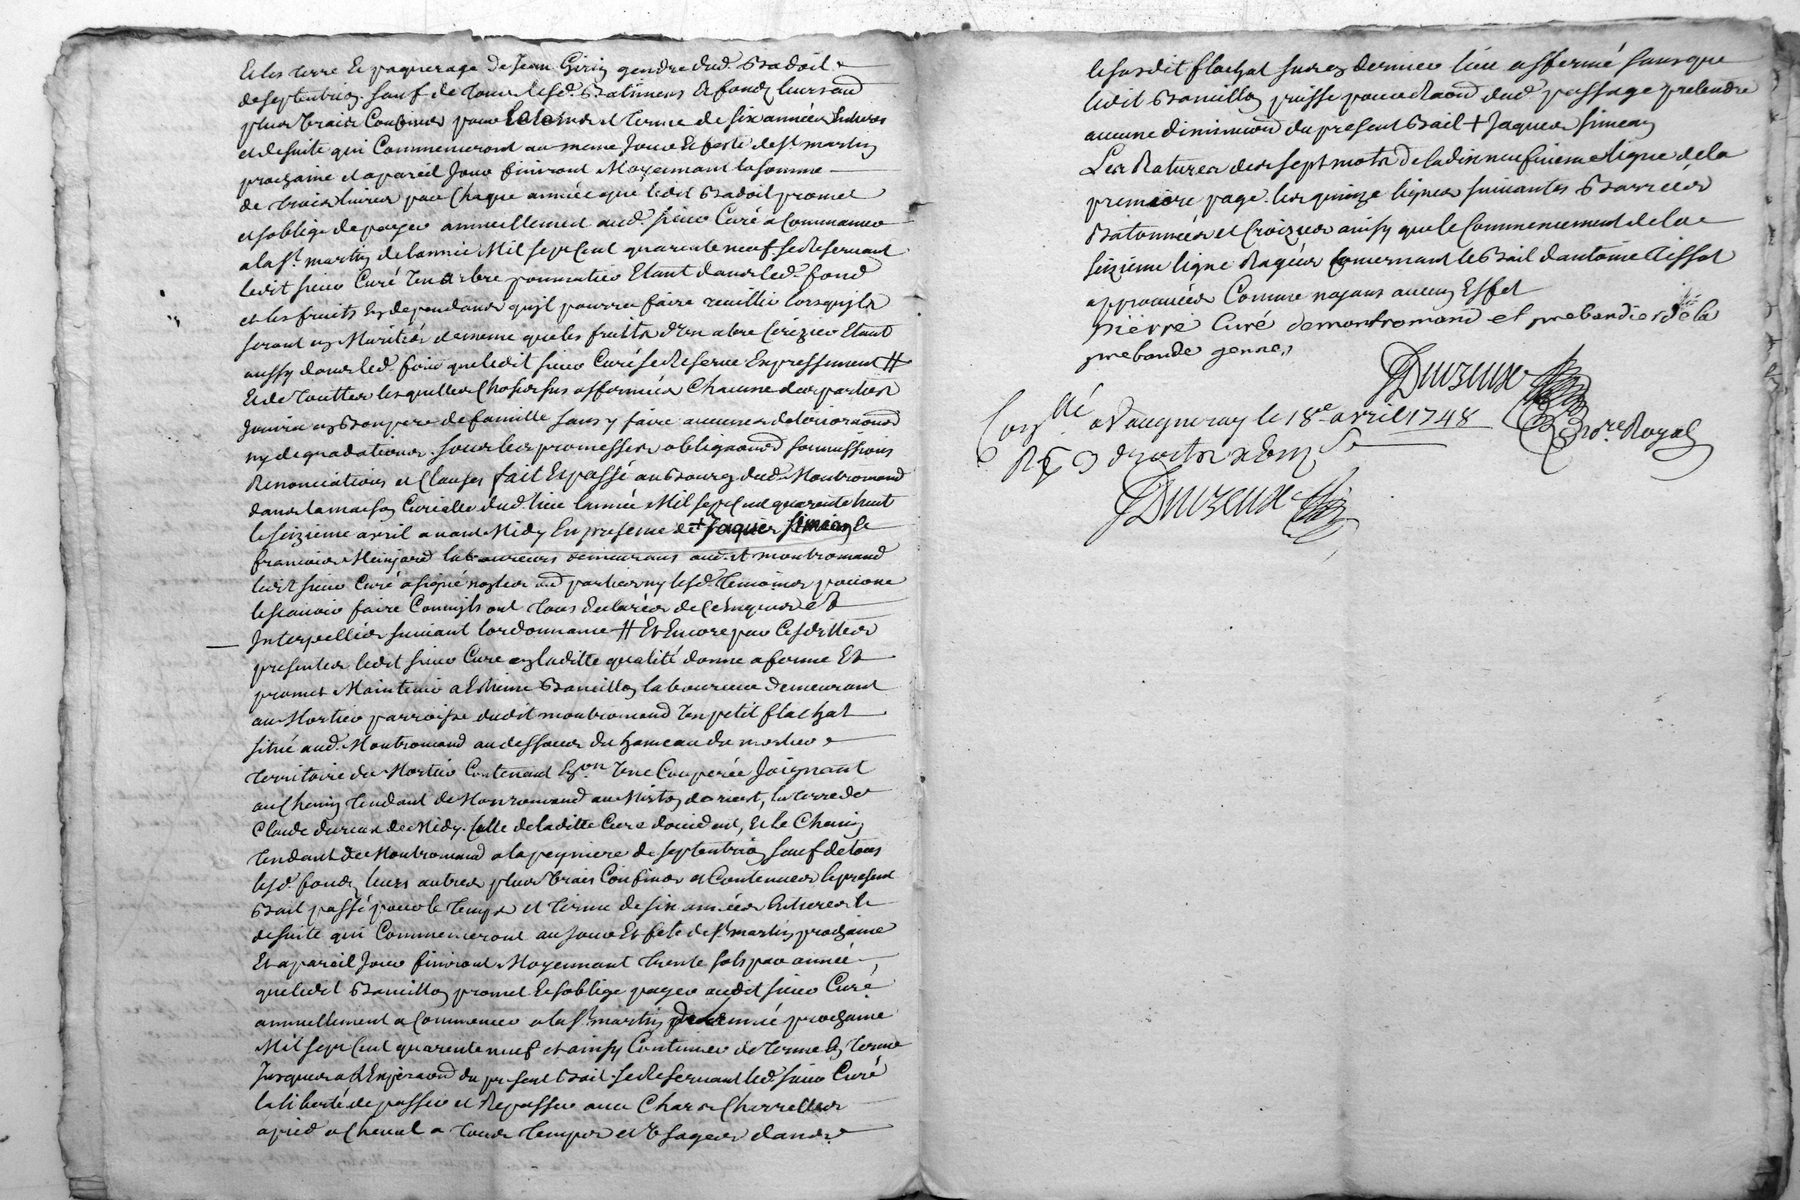 Et les terre Et paquerage de Jean Giriy gendre dud. Badoil
de septentrioy. sauf de tous lesd. Batimens Et fondz leurs aud
plus vrais Confiner pour Et terme de six années Entieres
et de suite qui Commenceront au meme Jour Et feste de st martiy
prochaine et a pareil Jour finiront Moyennant la somme
de trois livres par Chaque année que ledit Badoil promet
et soblige de payer annuellement aud. sieur Curé a Commancer
a la st. martiy de lannée Mil sept Cent quarente neuf se Reservant
ledit sieur Curé Un arbre pommatier Etant dans led. fond
et les fruits Ey dependans quil pourra faire ceuillir lorsquils
seront ey Maritéz de meme que les fruits d'un abre Cerizier Etant
aussy dans led. fond que ledit sieur Curé se Reserve Expressement #
Et de toutter lesquelles Choses sus affermées Chacune des parties
Jouira ey Bon pere de famille sans y faire aucunes deteriora͠ons
ny degradations. sous les promesses obliga͠ons soumissions
Renonciations et Clauses fait Et passé au Bourg dud. Montromand
dans la maison Curialle dud. lieu lannée Mil sept Cent quarente huit
le seizieme avril avant Midy En presence de Jaques Simeon Et
francois Meinjard laboureurs demeurans aud. montromand
ledit sieur Curé a signé non les aud parties ny lesd. temoins pour ne
le scavoir faire Commils ont tous declarés de Ce Enquis et
Interpellés suivant lordonnance # Et Encore par Cesdittes
presentes ledit sieur Curé ey laditte qualité donne a ferme Et
promet Maintenir a Etienne Bancilloy laboureur demeurant
au Mortier parroisse dudit montromand Un petit flachat
situé aud. Montromand au dessous du hameau du mortier
territoire du Mortier Contenant Eyon. Une Couperée Joignant
au Chemiy tendant de Monromand au de orient, la terre de
Claude de Midy. Celle de laditte Cure doccident, Et le Chemiy
tendant de Montromand a la peyniere de septentrioy sauf de tous
lesd. fondz leurs autres plus vrais Confins et Contenues le present
Bail passé pour le temps et terme de six années Entieres Et
de suite qui Commenceront au Jour Et feste de st martiy prochaine
Et a pareil Jour finiront Moyennant trente sols par année
que ledit Bancilloy promet Et soblige payer audit sieur Curé
annuellement a Commencer a la st martiy prochaine
Mil sept Cent quarente neuf et ainsy Continuer de terme Ey terme
Jusques a lExpira͠on du present Bail. se Reservant led. sieur Curé
la liberté de passer et Repasser avec Chars Charrettes
a pied a Cheval a tous temps et Usages dans
le susdit flachat sur ey dernier lieu affermé sans que
ledit Bancilloy puisse pour Raon dud. passage pretendre
aucune diminu͠on du present Bail + Jaques Simeon
Les Ratures des sept mots de la dix neufvieme ligne de la
premiere page. les quinze lignes suivantes Barrées
Batonnées et Croizées ainsy que le Commencement de la
seizieme ligne Rayées Concernant le Bail d'antoine Aissat
approuvées Comme nayans aucuy Effet
pierre Curé de montromand et prebandier de la
prebande
Duvzeux
Conllé a Vaugneray le 18e avril 1748
nore. Royal
Duvzeux